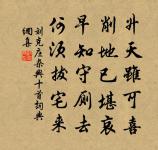 升天雖可喜
削地已堪哀
早知守厠去
何須拔宅来
劉克庄雜興十首詞典
網喜